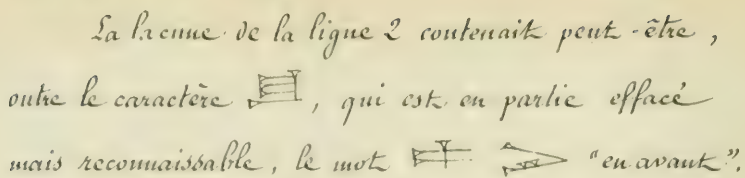 La lacune de la ligne 2 contenait peut-être,
outre le caractère , qui est en partie effacé
mais reconnaissable, le mot "en avant".